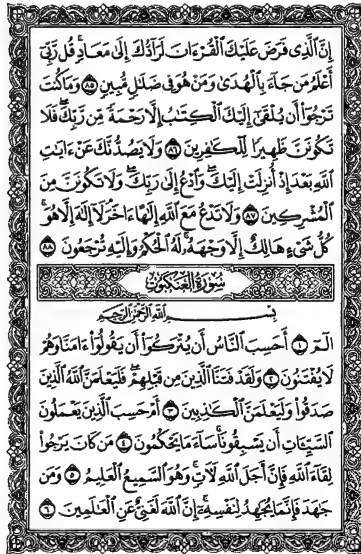 إِنَّ ٱلَّذِى فَرَضَ عَلَيْكَ ٱلْقُرْءَانَ لَرَآدُّكَ إِلَىٰ مَعَادٍۢ ۚ قُل رَّبِّىٓ
أَعْلَمُ مَن جَآءَ بِٱلْهُدَىٰ وَمَنْ هُوَ فِى ضَلَٰلٍۢ مُّبِينٍۢ ٨٥ وَمَا كُنتَ
تَرْجُوٓا۟ أَن يُلْقَىٰٓ إِلَيْكَ ٱلْكِتَٰبُ إِلَّا رَحْمَةًۭ مِّن رَّبِّكَ ۖ فَلَا
تَكُونَنَّ ظَهِيرًۭا لِّلْكَٰفِرِينَ ٨٦ وَلَا يَصُدُّنَّكَ عَنْ ءَايَٰتِ
ٱللَّهِ بَعْدَ إِذْ أُنزِلَتْ إِلَيْكَ ۖ وَٱدْعُ إِلَىٰ رَبِّكَ ۖ وَلَا تَكُونَنَّ مِنَ
ٱلْمُشْرِكِينَ ٨٧ وَلَا تَدْعُ مَعَ ٱللَّهِ إِلَٰهًا ءَاخَرَ ۘ لَآ إِلَٰهَ إِلَّا هُوَ ۚ
كُلُّ شَىْءٍ هَالِكٌ إِلَّا وَجْهَهُۥ ۚ لَهُ ٱلْحُكْمُ وَإِلَيْهِ تُرْجَعُونَ ٨٨
سُورَةُ الْعَنْكَبُوتِ
بِسْمِ ٱللَّهِ ٱلرَّحْمَٰنِ ٱلرَّحِيمِ
الٓمٓ ١ أَحَسِبَ ٱلنَّاسُ أَن يُتْرَكُوٓا۟ أَن يَقُولُوٓا۟ ءَامَنَّا وَهُمْ
لَا يُفْتَنُونَ ٢ وَلَقَدْ فَتَنَّا ٱلَّذِينَ مِن قَبْلِهِمْ ۖ فَلَيَعْلَمَنَّ ٱللَّهُ ٱلَّذِينَ
صَدَقُوا۟ وَلَيَعْلَمَنَّ ٱلْكَٰذِبِينَ ٣ أَمْ حَسِبَ ٱلَّذِينَ يَعْمَلُونَ
ٱلسَّيِّـَٔاتِ أَن يَسْبِقُونَا ۚ سَآءَ مَا يَحْكُمُونَ ٤ مَن كَانَ يَرْجُوا۟
لِقَآءَ ٱللَّهِ فَإِنَّ أَجَلَ ٱللَّهِ لَءَاتٍۢ ۚ وَهُوَ ٱلسَّمِيعُ ٱلْعَلِيمُ ٥ وَمَن
جَٰهَدَ فَإِنَّمَا يُجَٰهِدُ لِنَفْسِهِۦٓ ۚ إِنَّ ٱللَّهَ لَغَنِىٌّ عَنِ ٱلْعَٰلَمِينَ ٦